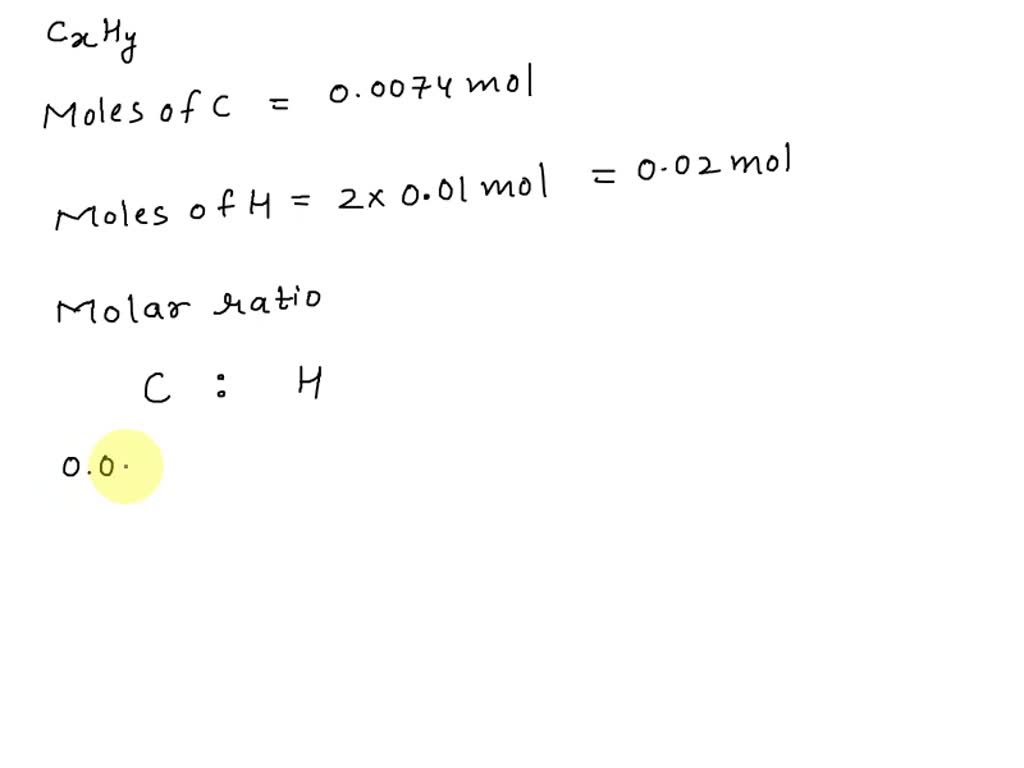 CxHy
Moles of C = 0.0074 mol
Moles of H = 2x 0.01 mol = 0.02 mol
Molar ratio
C : H
0.0.